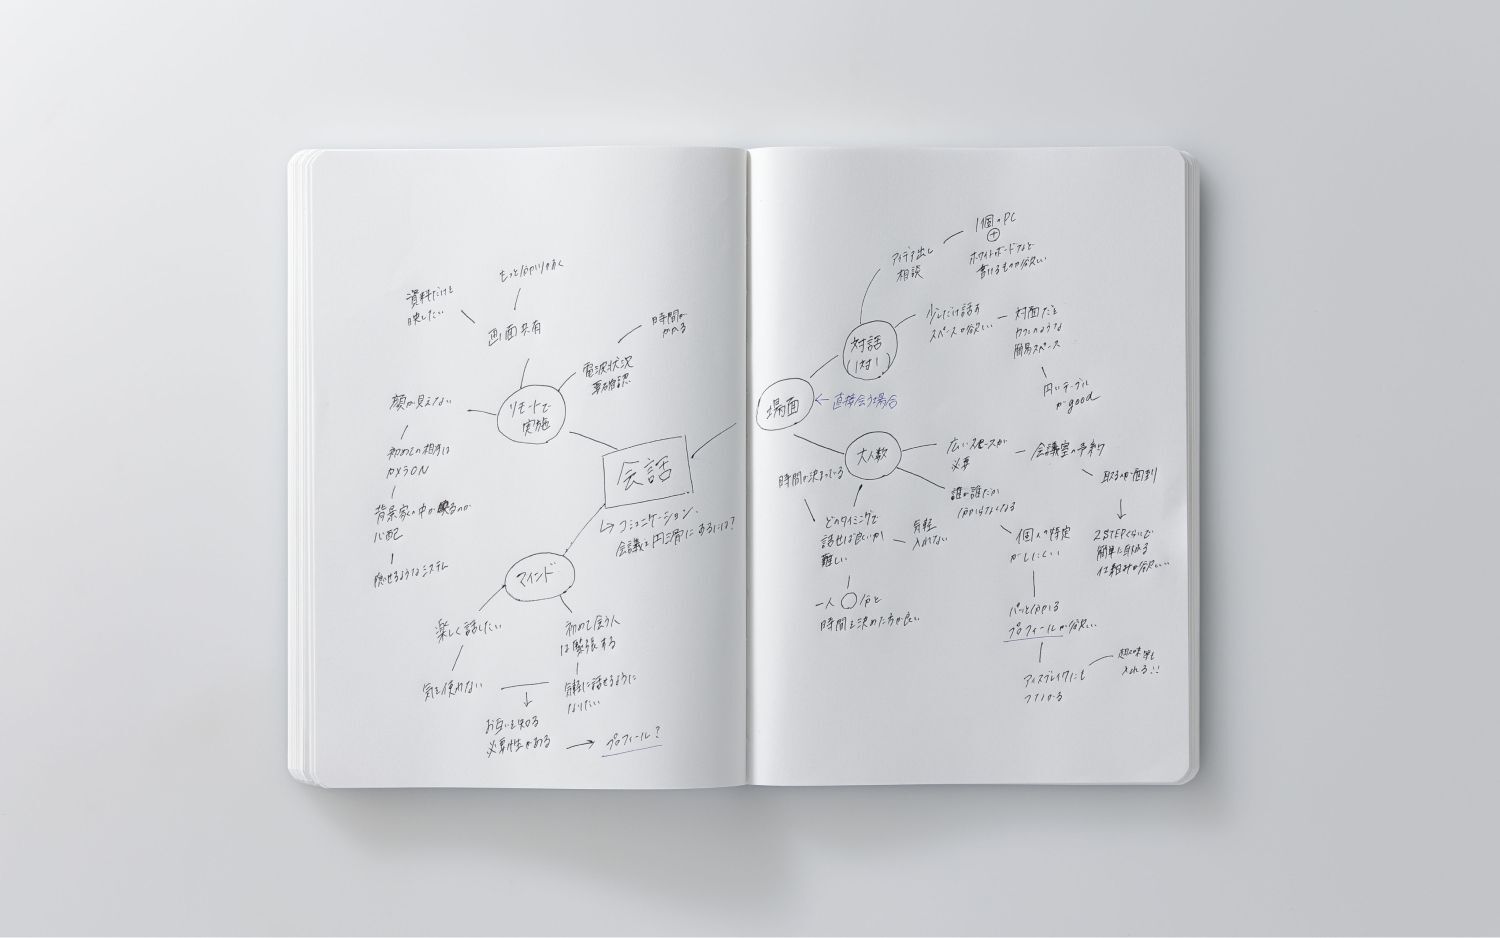 もっと分かりやすく
資料だけを
映したい
画面共有
時間が
かかる
電波状況
要確認
顔が見えない
リモートで
実施
初めての相手は
カメラON
背景家の中が映るのが
心配
隠せるようなシステム
会話
コミュニケーション、
会議を円滑にするには?
マインド
楽しく話したい
初めて会う人
は緊張する
気を使わない
気軽に話せるように
なりたい
お互いを知る
必要性がある
プロフィール?
1個のPC
+
ホワイトボードなど
書けるものが欲しい
アイデア出し
相談
少しだけ話す
スペースが欲しい
対面だと
カフェのような
簡易スペース
円いテーブル
がgood
対話
(1対1)
場面
直接会う場合
大人数
広いスペースが
必要
会議室の予約
取るのが面倒
2STEPくらいで
簡単に取れる
仕組みが欲しい
時間が決まっている
どのタイミングで
話せば良いか
難しい
気軽
入れない
一人○分と
時間を決めた方が良い
誰が誰だか
分からなくなる
個人の特定
がしにくい
パッと分かる
プロフィールが欲しい
アイスブレイクにも
つながる
趣味等も
入れる!!